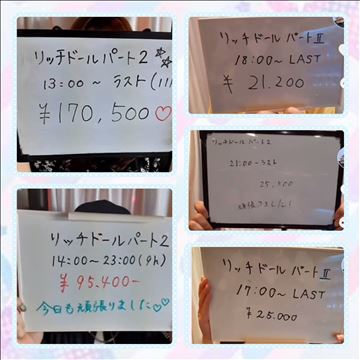 リッチドールパート2
13:00～ラスト(11
¥170,500♡
リッチドールパートⅡ
18:00～LAST
¥21.200
リッチドールパート2
21:00～ラスト
リッチドールパート2
14:00～23:00(9h)
¥95.400-
今日も頑張りました♡♡
リッチドールパートⅡ
17:00～LAST
¥25.000